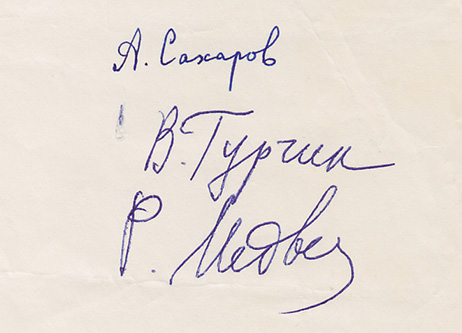 А. Сахаров
В. Турчин
Р. Медвед